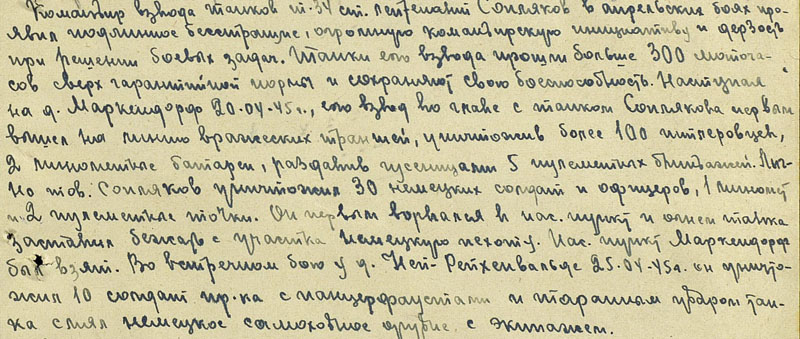 Командир взвода танков т-34 ст. лейтенант Сопляков в апрельских боях про-
явил подлинное бесстрашие, огромную командирскую инициативу и дерзость
при решении боевых задач. Танки его взвода прошли больше 300 моточа-
сов сверх гарантийной нормы и сохраняют свою боеспособность. Наступая
на д. Маркендорф 20.04.45г., его взвод во главе с танком Соплякова первым
вышел на линию вражеских траншей, уничтожив более 100 гитлеровцев,
2 минометные батареи, раздавив гусеницами 5 пулеметных блиндажей. Лич-
но тов. Сопляков уничтожил 30 немецких солдат и офицеров, 1 миномет
и 2 пулеметные точки. Он первым ворвался в нас. пункт и огнем танка
заставил бежать с участка немецкую пехоту. Нас. пункт Маркендорф
был взят. Во встречном бою у д. Ней-Ретхенвальде 25.04.45г. он уничто-
жил 10 солдат пр-ка с панцерфаустами и таранным ударом тан-
ка смял немецкое самоходное орудие с экипажем.